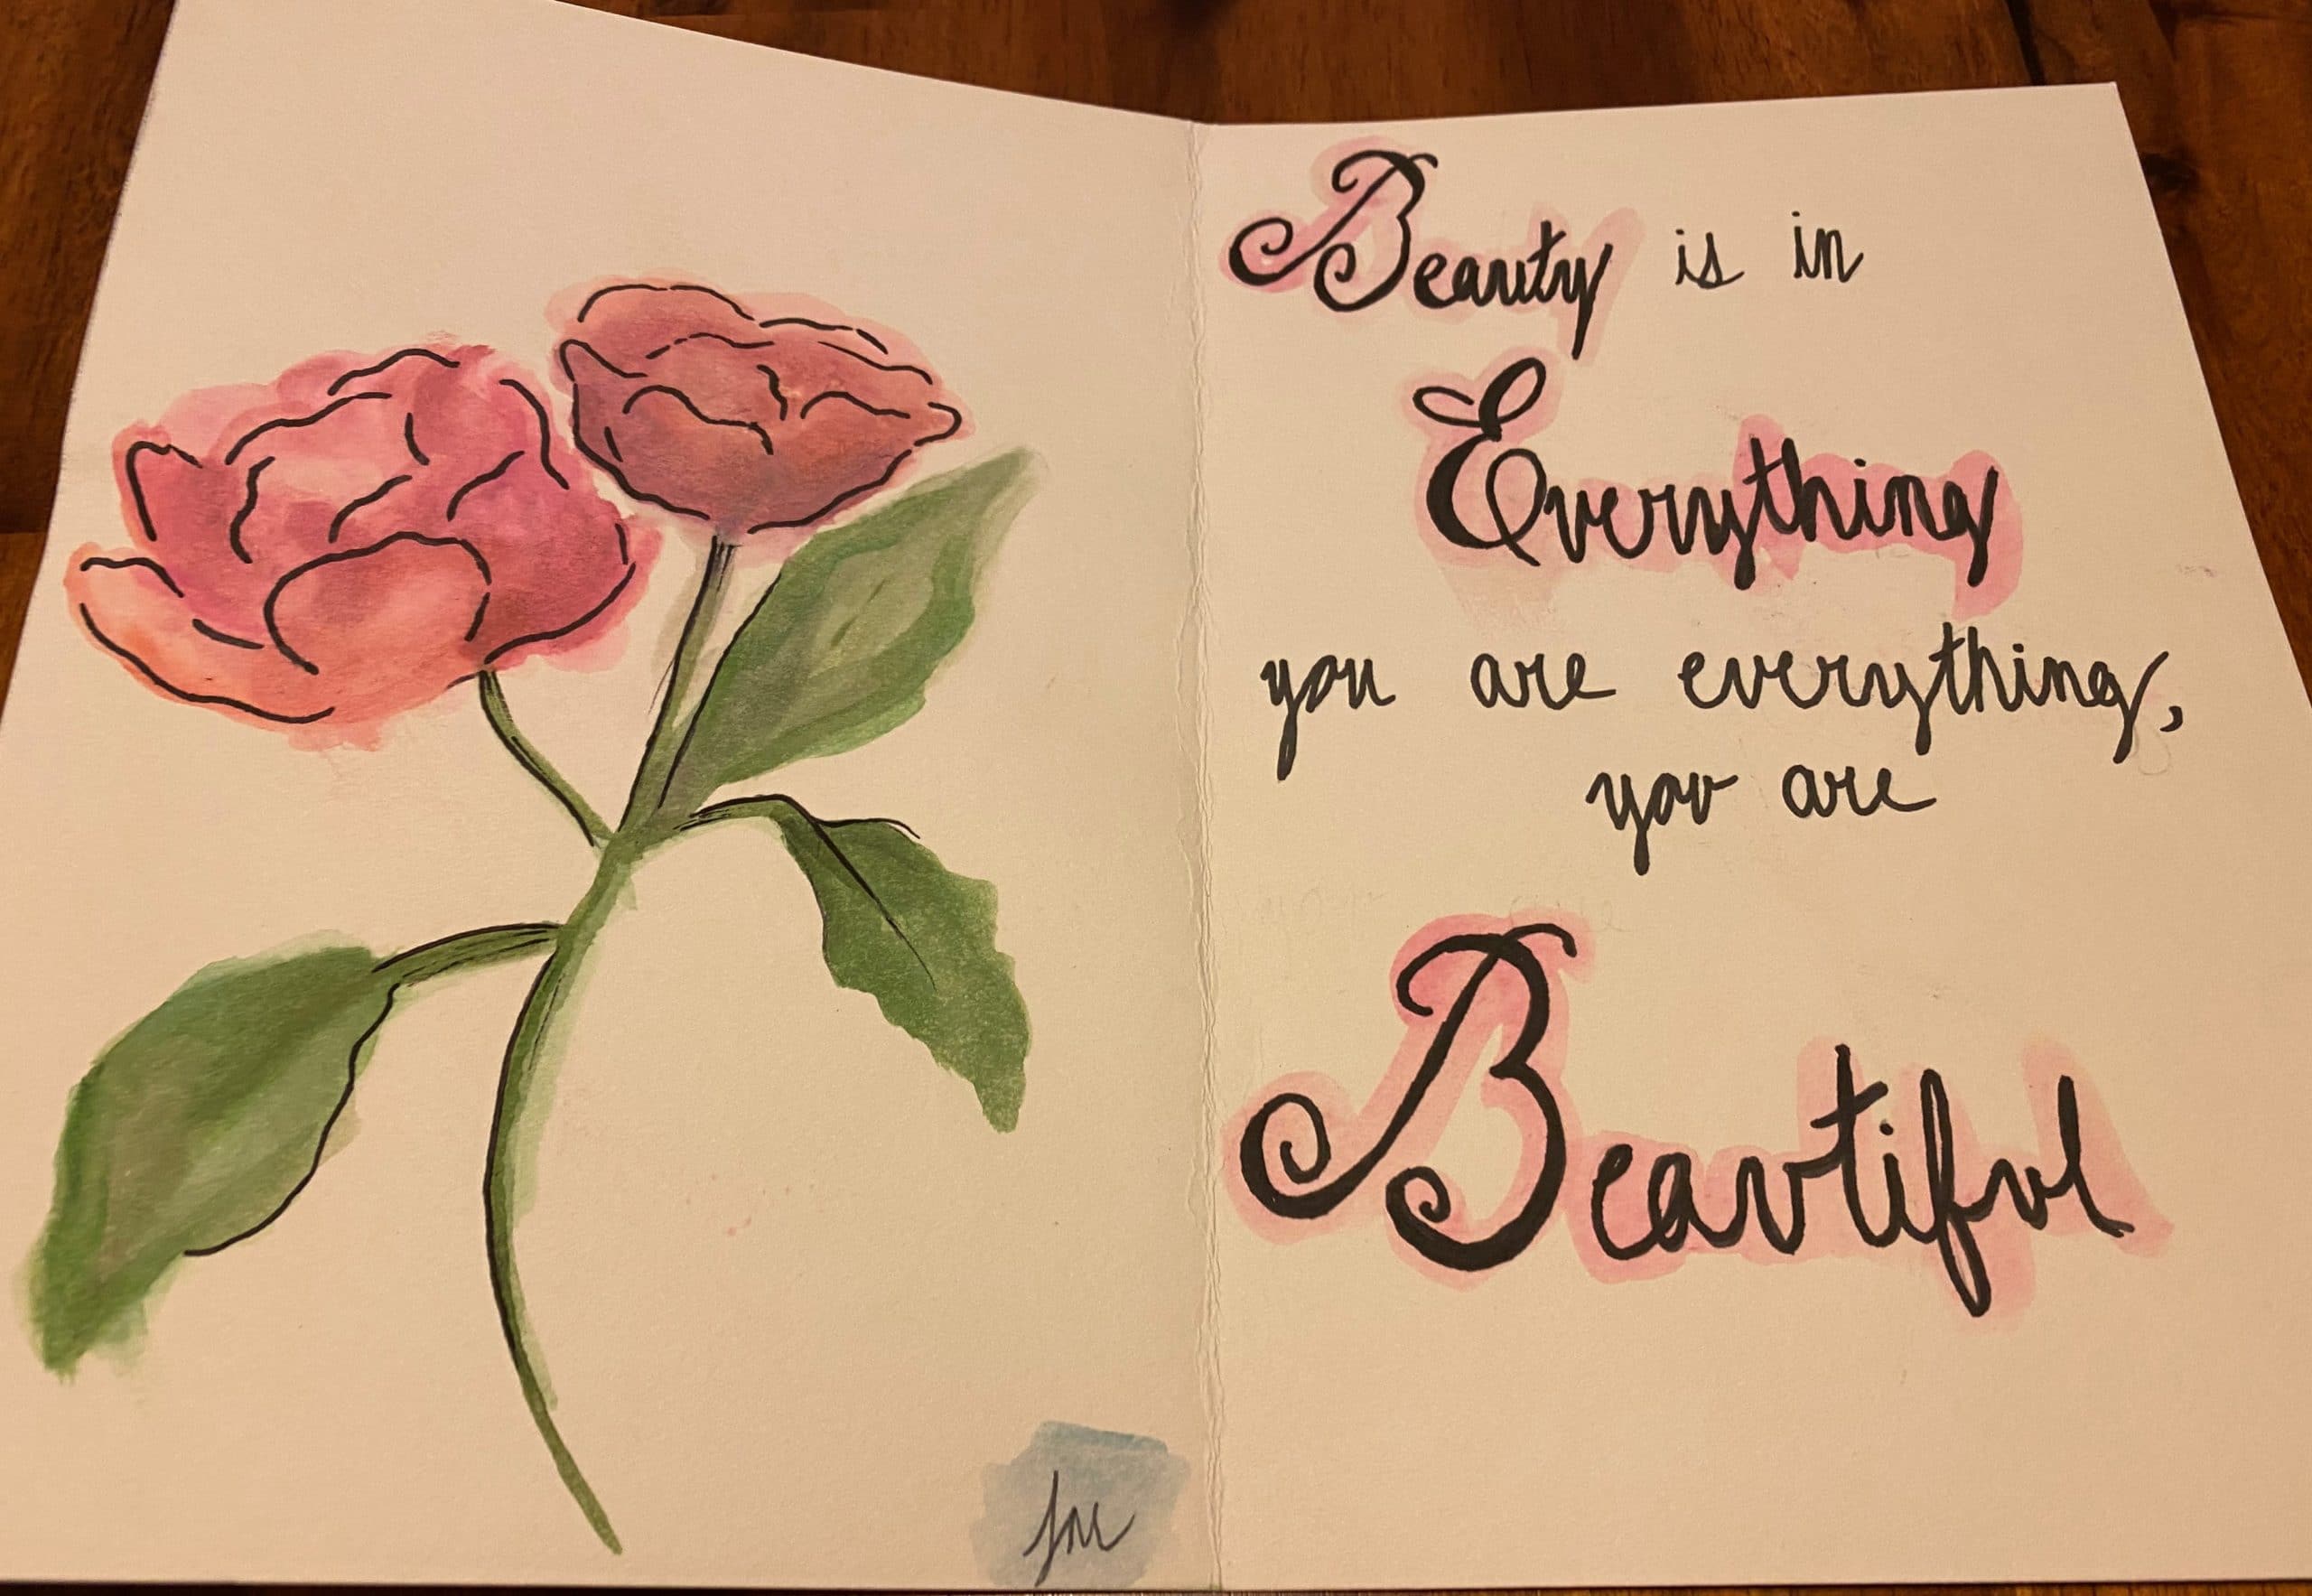 Beauty is in
Everything
you are everything,
you are
Beautiful